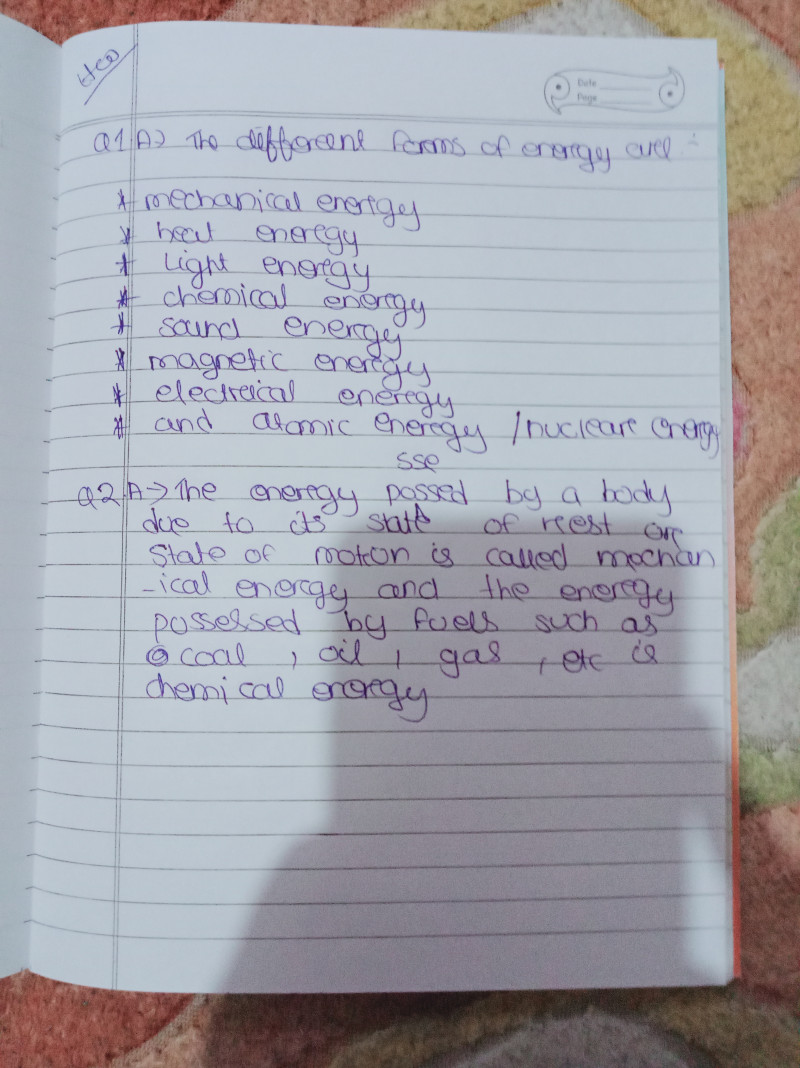 Date
Page
Q1 A> The different forms of energy are :-
* mechanical energy
* heat energy
* Light energy
* chemical energy
* sound energy
* magnetic energy
* electrical energy
* and atomic energy / nuclear energy
sse
Q2 A→ The energy possed by a body
due to its state of rest or
state of motion is called mechan
-ical energy and the energy
possessed by fuels such as
coal , oil , gas , etc is
chemical energy